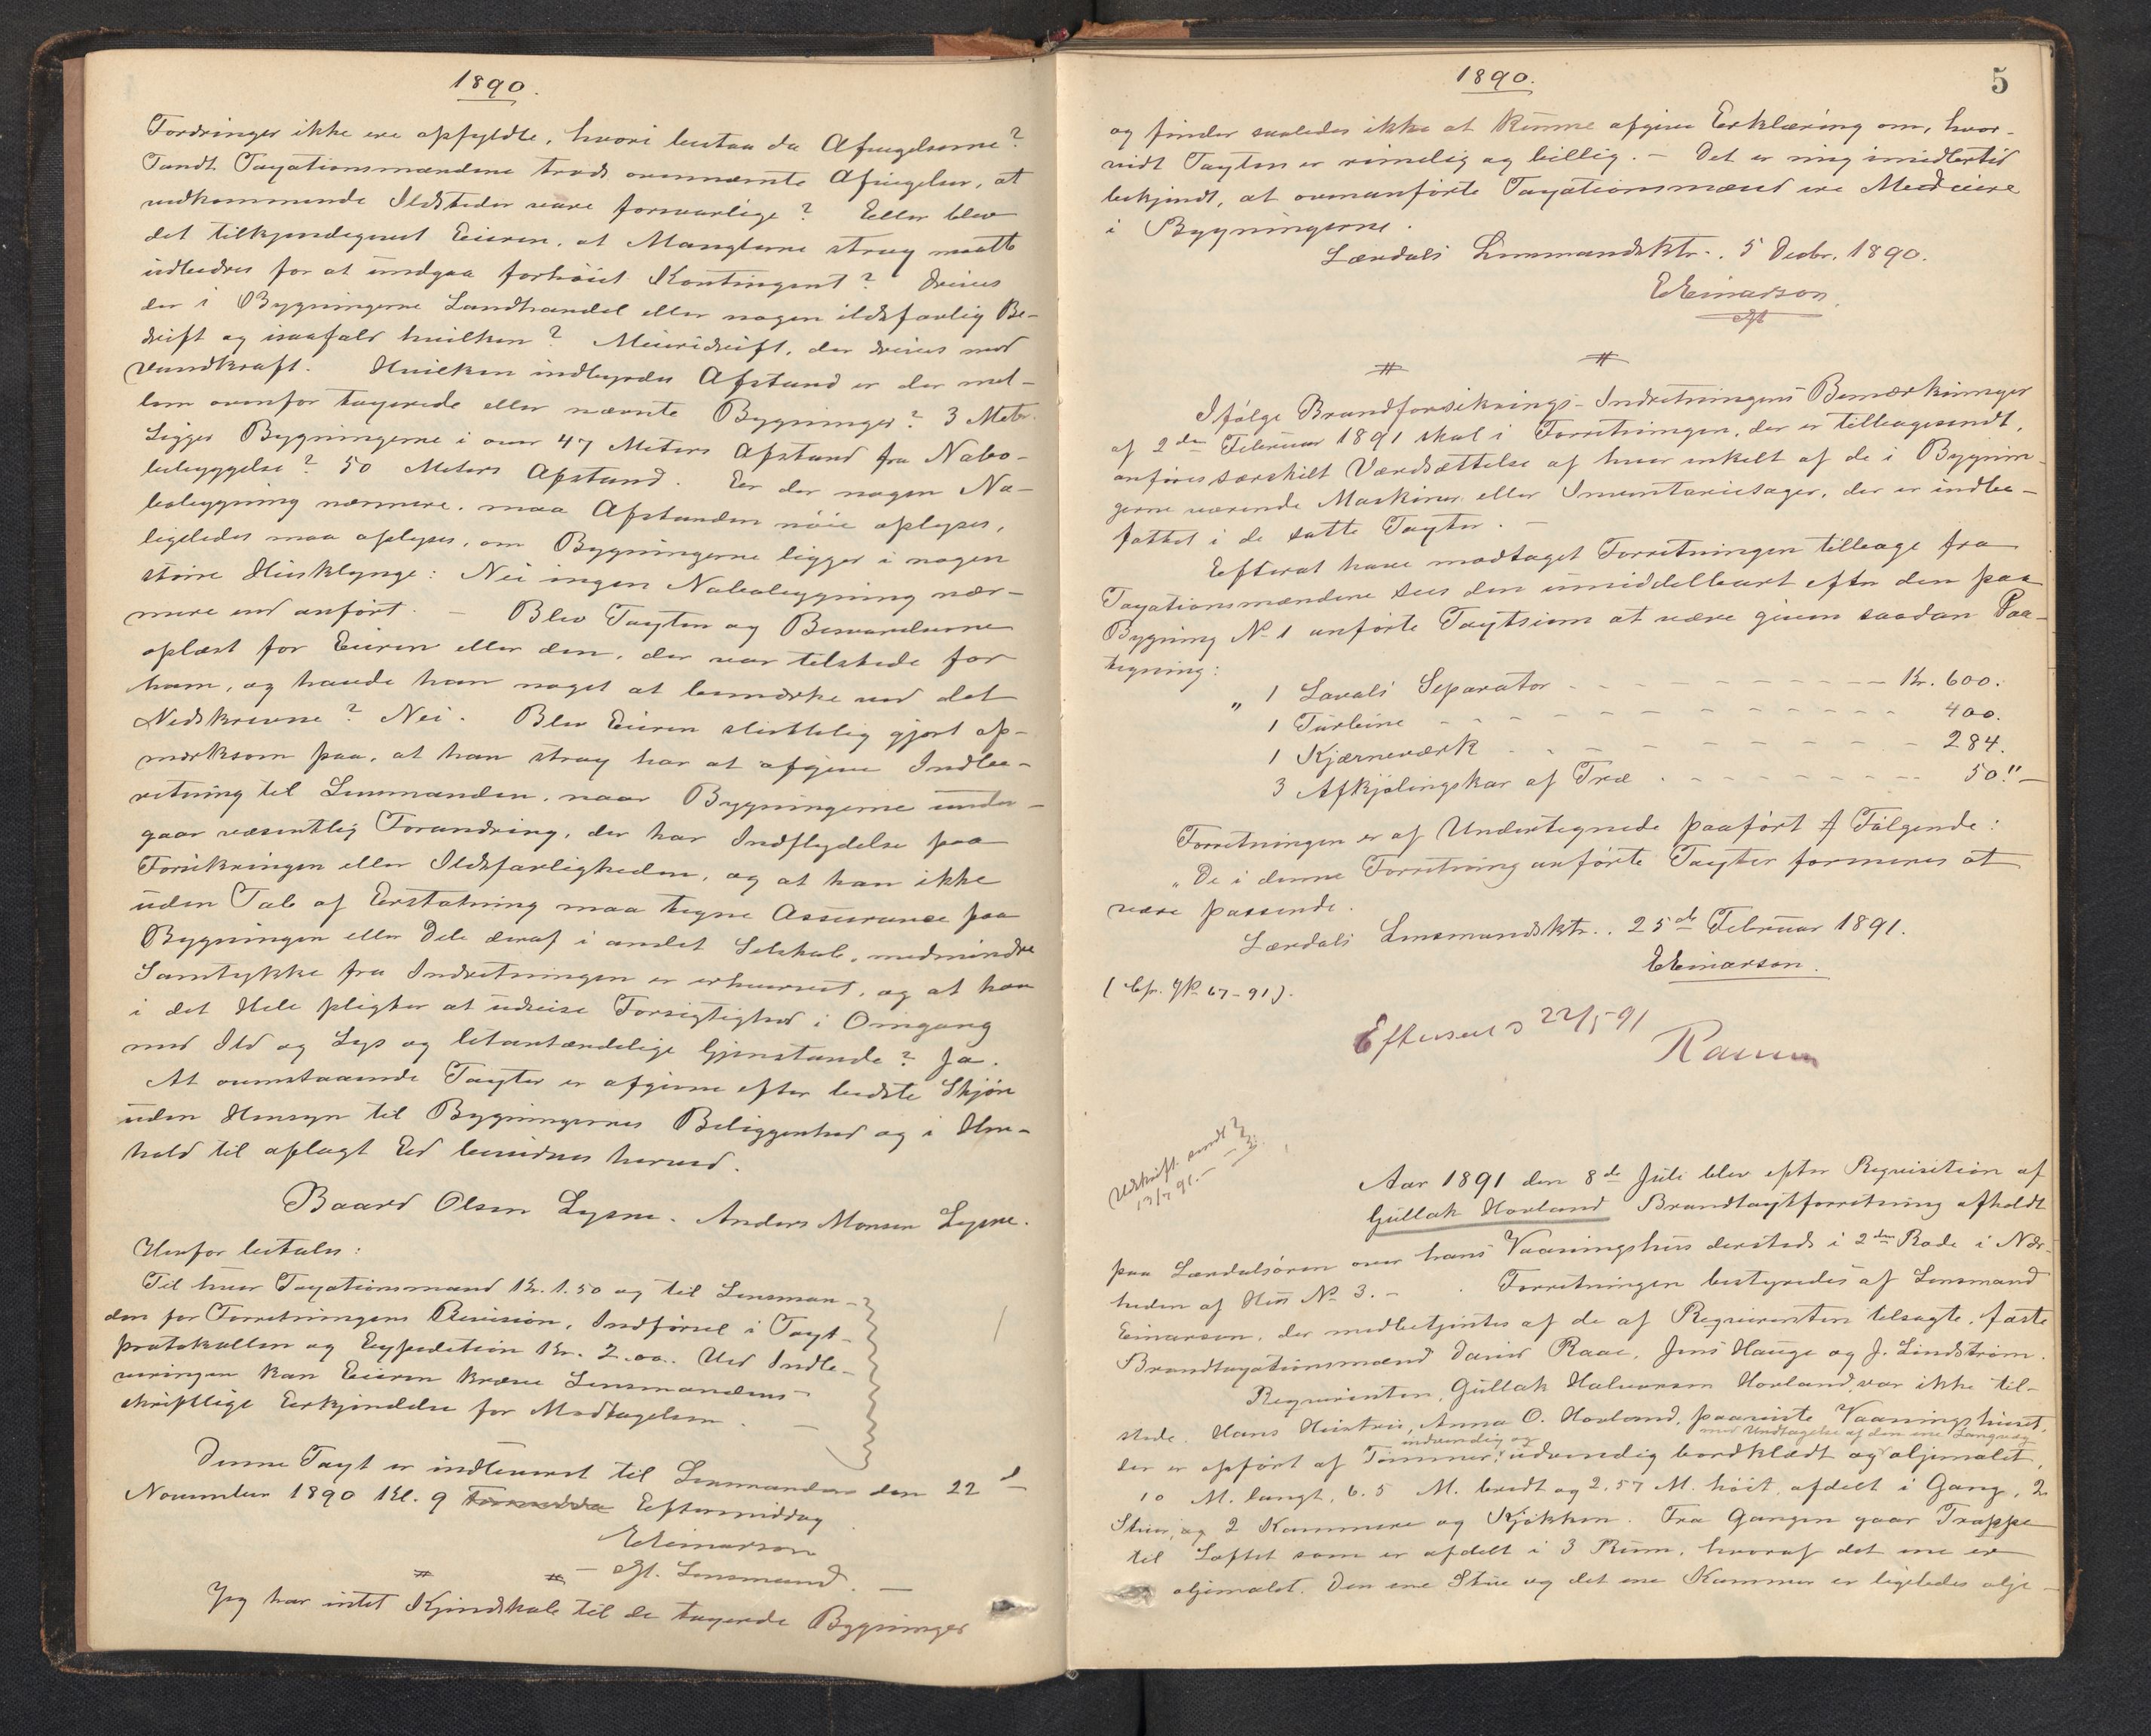 1890.
Fordringer ikke ere opfyldte, hvori bestaa da Afvigelserne?
Fandt Taxationsmændene trods ovennævnte Afvigelser, at
vedkommende Ildsteder vare forsvarlige? Eller blev
det tilkjendegivet Eieren, at Manglerne strax maatte
udbedres for at undgaa forhöiet Kontingent? Drives
der i Bygningerne Landhandel eller nogen ildsfarlig Be-
drift og isaafald hvilken? Meieridrift, der drives med
Vandkraft. Hvilken indbyrdes Afstand er der mel-
lem ovenfor taxerede eller nævnte Bygninger? 3 Meter.
Ligger Bygningerne i over 47 Meters Afstand fra Nabo-
bebyggelse? 50 Meters Afstand. Er der nogen Na-
bobygning nærmere, maa Afstanden nöie oplyses,
ligeledes maa oplyses, om Bygningerne ligger i nogen
större Husklynge: Nei ingen Nabobygning nær-
mere end anfört. - Blev Taxten og Besvarelserne
oplæst for Eieren eller den, der var tilstede for
ham, og havde han noget at bemærke ved det
Nedskrevne? Nei. Blev Eieren sluttelig gjort op-
mærksom paa, at han strax har at afgive Indbe-
retning til Lensmanden, naar Bygningerne under-
gaar væsentlig Forandring, der har Indflydelse paa
Forsikringen eller Ildsfarligheden, og at han ikke
uden Tab af Erstatning maa tegne Assurance paa
Bygningen eller Dele deraf i andet Selskab, medmindre
Samtykke fra Indretningen er erhvervet, og at han
i det Hele pligter at udvise Forsigtighed i Omgang
med Ild og Lys og letantændelige Gjenstande? Ja.
At ovenstaaende Taxter er afgivne efter bedste Skjön
uden Hensyn til Bygningernes Beliggenhed og i Hen-
hold til aflagt Ed bevidnes herved.
Baard Olsen Lysne. Anders Monsen Lysne.
Herfor betales:
Til hver Taxationsmand Kr. 1.50 og til Lensman-
den for Forretningens Revision, Indförsel i Taxt-
protokollen og Expedition Kr. 2.00. Ved Indle-
veringen kan Eieren kræve Lensmandens
skriftlige Erkjendelse for Modtagelsen. -
Denne Taxt er indleveret til Lensmanden den 22d
November 1890 Kl. 9 Eftermiddag.
E Einarson
- Lensmand. -
Jeg har intet Kjendskab til de taxerede Bygninger
1890.
5
og finder saaledes ikke at kunne afgive Erklæring om, hvor-
vidt Taxten er rimelig og billig. - Det er mig imidlertid
bekjendt, at ovenanförte Taxationsmænd ere Medeiere
i Bygningerne.
Lærdals Lensmandsktr. 5 Decbr. 1890.
E Einarson
Ifölge Brandforsikrings-Indretningens Bemærkninger
af 2den Februar 1891 skal i Forretningen, der er tilbagesendt,
anföres særskilt Værdsættelse af hver enkelt af de i Bygnin-
gerne værende Maskiner eller Inventariesager, der er indbe-
fattet i de satte Taxter. -
Efterat have modtaget Forretningen tilbage fra
Taxationsmændene sees den umiddelbart efter den paa
Bygning No 1 anförte Taxtsum at være given saadan Paa-
tegning:
„ 1 Lavals Separator - - - Kr. 600.
1 Turbine - - - 400.
1 Kjærneværk - - - 284.
3 Afkjölingskar af Træ - - - 50."-
Forretningen er af Undertegnede paafört Fölgende:
„De i denne Forretning anförte Taxter formenes at
være passende.
Lærdals Lensmandsktr. 25de Februar 1891.
E Einarson.
(Cfr. 67-91).
Efterseet 22/5 91
Udskrift sendt
13/7 91. -
Aar 1891 den 8de Juli blev efter Requisition af
Gullak Hovland Brandtaxtforretning afholdt
paa Lærdalsören over hans Vaaningshus dersteds i 2den Rode i Nær-
heden af Hus No 3. - Forretningen bestyredes af Lensmand
Einarson, der medbetjentes af de af Requirenten tilsagte, faste
Brandtaxationsmænd David Raae, Jens Hauge og J. Lindström.
Requirenten, Gullak Halvorsen Hovland, var ikke til-
stede. Hans Hustru, Anna O. Hovland, paaviste Vaaningshuset,
indvendig og med Undtagelse af den ene Langvæg
der er opfört af Tömmer, udvendig bordklædt og oljemalet,
10 M. langt, 6.5 M. bredt og 2.57 M. höit, afdelt i Gang, 2
Stuer, og 2 Kammere og Kjökken. Fra Gangen gaar Trappe
til Loftet som er afdelt i 3 Rum, hvoraf det ene er
oljemalet. Den ene Stue og det ene Kammer er ligeledes olje-